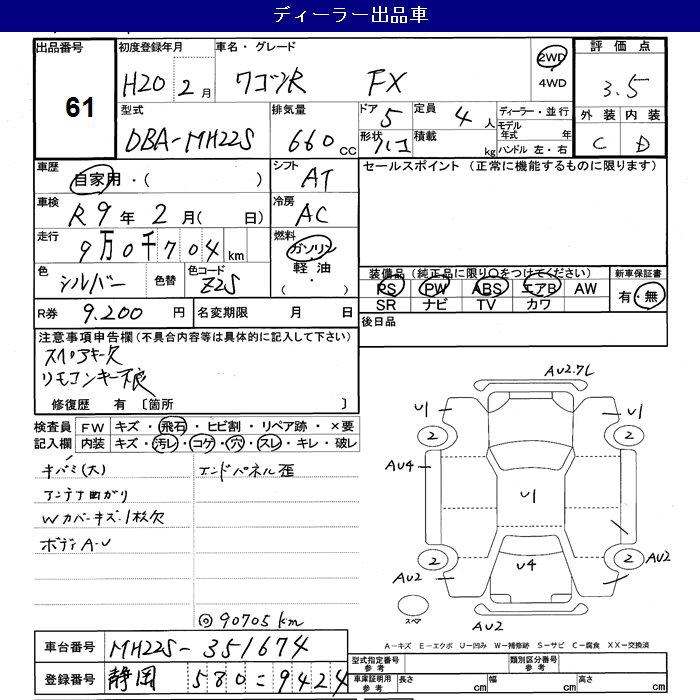 ディーラー出品車
出品番号 61
初度登録年月 H20 2月
車名・グレード ワゴンR FX
2WD
4WD
評価点 3.5
外装 内装
C D
型式 DBA-MH22S
排気量 660 cc
ドア 5
形状 ハコ
定員 4人
積載 kg
ディーラー・並行
モデル年式 年
ハンドル 左・右
車歴 自家用・( )
シフト AT
セールスポイント (正常に機能するものに限ります)
車検 R9年 2月( 日)
冷房 AC
走行 9万0千704km
燃料 ガソリン
軽油
( ・ )
色 シルバー 色替
色コード Z2S
装備品(純正品に限り○をつけてください)
PS PW ABS エアB AW
SR ナビ TV カワ
新車保証書
有・無
R券 9.200 円
名変期限 月 日
後日品
注意事項申告欄(不具合内容等は具体的に記入して下さい)
スペアキー欠
リモコンキー不良
修復歴 有 〔箇所 〕
検査員記入欄
FW キズ・飛石・ヒビ割・リペア跡・×要
内装 キズ・汚レ・コゲ・穴・スレ・キレ・破レ
キバミ(大)
アンテナ曲がり
Wカバーキズ・1枚欠
ボディA-U
エンドパネル歪
◎90705km
AU2.7L
U1 U1
2 2
AU4
U1
U4
2 2
AU2 AU2
スペア
AU2
A−キズ E−エクボ U−凹み W−補修跡 S−サビ C−腐食 XX−交換済
車台番号 MH22S-351674
登録番号 静岡 580 ニ 9424
型式指定番号 参考
類別区分番号 参考
車庫証明用 参考
長さ cm
幅 cm
高さ cm